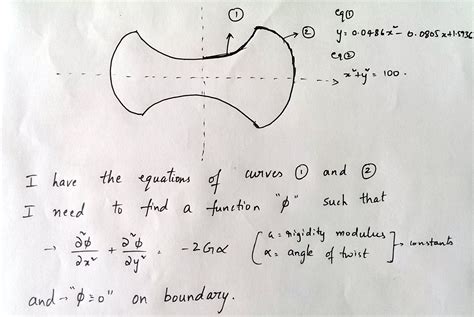 ① eq①
② y = 0.0486x² - 0.0805x+1.5936
eq②
x²+y² = 100.
I have the equations of curves ① and ②
I need to find a function "ϕ" such that
→ ∂²ϕ/∂x² + ∂²ϕ/∂y² = -2Gα [G = rigidity modulus, α = angle of twist] → constants
and → "ϕ=0" on boundary.